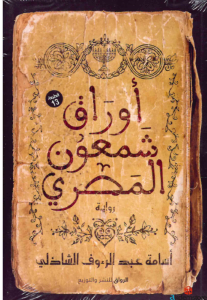 الطبعة
13
أوراق
شمعون
المصري
رواية
أسامة عبد الرءوف الشاذلي
الرواق للنشر والتوزيع